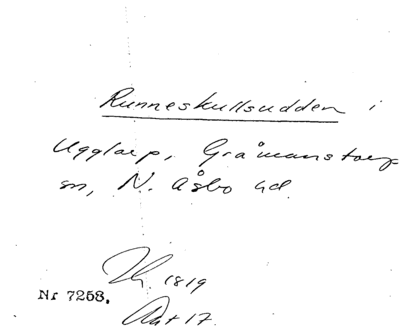 Runneskullsudden i
Ugglarp, Gråmanstorps
sn, N. Åsbo hd.
Th. 1819
Nr 7258.
Ant 17.